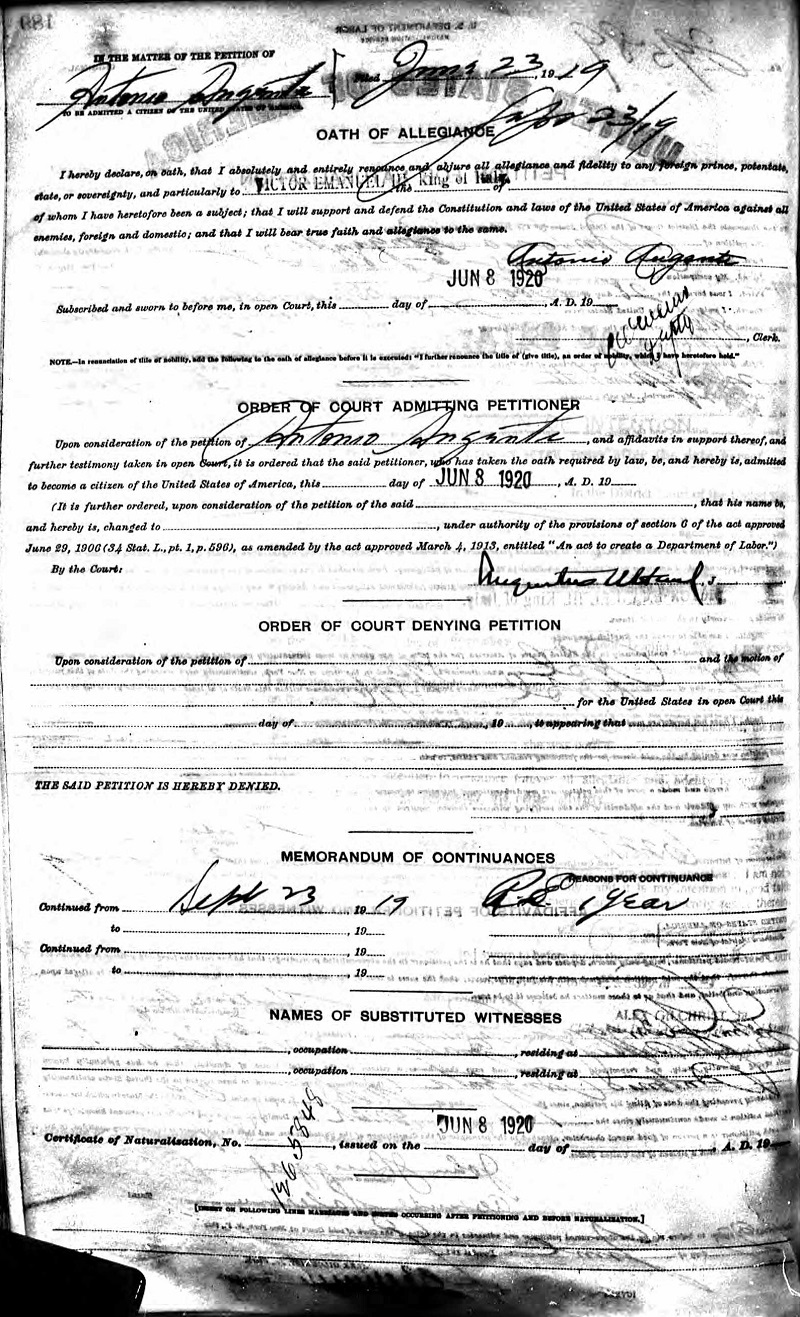 IN THE MATTER OF THE PETITION OF
Antonio Filed June 23 1919
TO BE ADMITTED A CITIZEN OF THE UNITED STATES OF AMERICA
23/19
OATH OF ALLEGIANCE
I hereby declare, on oath, that I absolutely and entirely renounce and abjure all allegiance and fidelity to any foreign prince, potentate,
state, or sovereignty, and particularly to VICTOR EMANUEL III, King of Italy,
of whom I have heretofore been a subject; that I will support and defend the Constitution and laws of the United States of America against all
enemies, foreign and domestic; and that I will bear true faith and allegiance to the same.
Antonio
JUN 8 1920
Subscribed and sworn to before me, in open Court, this day of , A. D. 19
, Clerk.
NOTE.—In renunciation of title of nobility, add the following to the oath of allegiance before it is executed: "I further renounce the title of (give title), an order of nobility, which I have heretofore held."
ORDER OF COURT ADMITTING PETITIONER
Upon consideration of the petition of Antonio , and affidavits in support thereof, and
further testimony taken in open Court, it is ordered that the said petitioner, who has taken the oath required by law, be, and hereby is, admitted
to become a citizen of the United States of America, this day of JUN 8 1920, A. D. 19
(It is further ordered, upon consideration of the petition of the said , that his name be,
and hereby is, changed to , under authority of the provisions of section 6 of the act approved
June 29, 1906 (34 Stat. L., pt. 1, p. 596), as amended by the act approved March 4, 1913, entitled "An act to create a Department of Labor.")
By the Court:
Augustus N Hand, J
ORDER OF COURT DENYING PETITION
Upon consideration of the petition of and the motion of
for the United States in open Court this
day of , 19 , it appearing that
THE SAID PETITION IS HEREBY DENIED.
MEMORANDUM OF CONTINUANCES
REASONS FOR CONTINUANCE
Continued from Sept 23 1919 1 year
to , 19
Continued from , 19
to , 19
NAMES OF SUBSTITUTED WITNESSES
, occupation , residing at
, occupation , residing at
JUN 8 1920
Certificate of Naturalization, No. , issued on the day of , A. D. 19